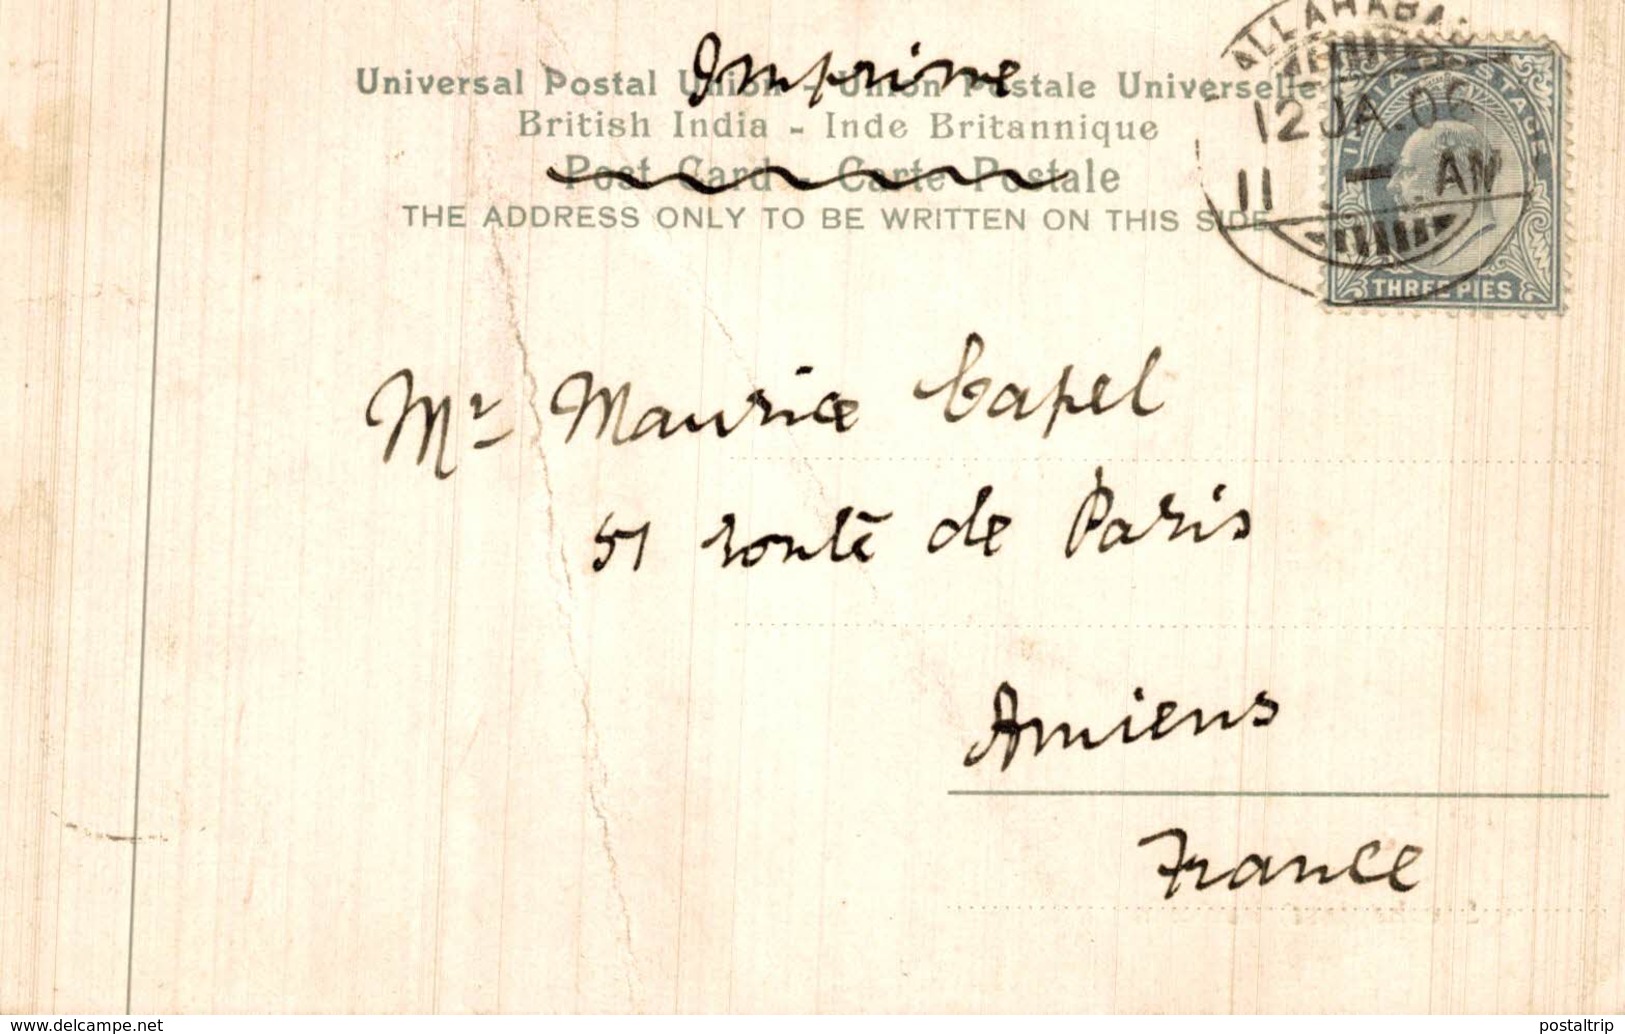 Imprime
Universal Postal Union - Union Postale Universelle
British India - Inde Britannique
Post Card - Carte Postale
THE ADDRESS ONLY TO BE WRITTEN ON THIS SIDE
ALLAHABA
12 JA. 06
11 - AM
INDIA POSTAGE
THREE PIES
Mr Maurice Capel
51 route de Paris
Amiens
France
www.delcampe.net
postaltrip